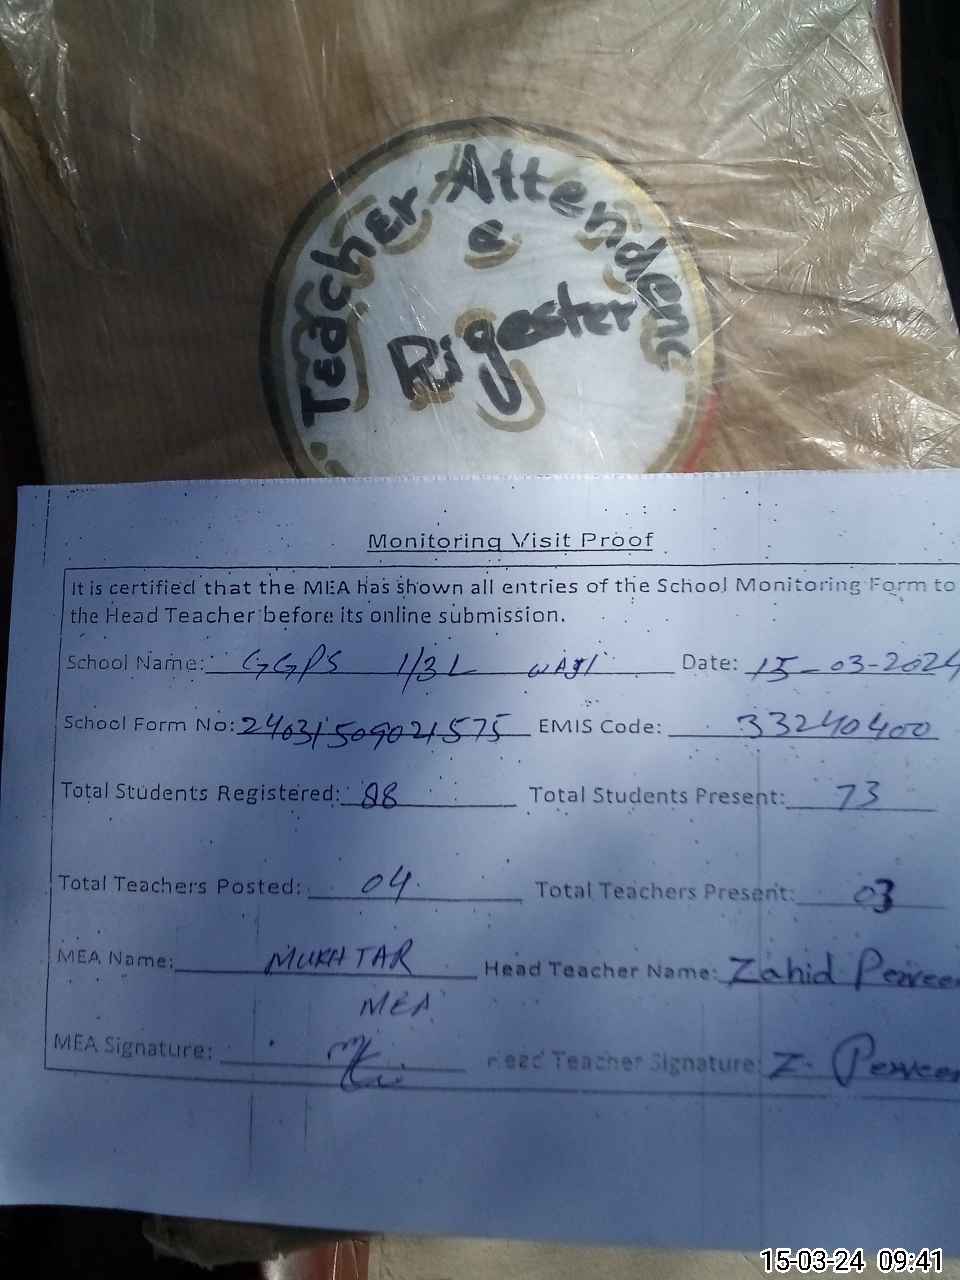 Teacher Attendenc
e
Rigester
Monitoring Visit Proof
It is certified that the MEA has shown all entries of the School Monitoring Form to
the Head Teacher before its online submission.
School Name: GGPS 1/3L Date: 15-03-2024
School Form No: 24031509021575 EMIS Code: 33240400
Total Students Registered: 88 Total Students Present: 73
Total Teachers Posted: 04 Total Teachers Present: 03
MEA Name: MUKHTAR Head Teacher Name: Zahid Perveen
MEA
MEA Signature: Head Teacher Signature: Z. Perveen
15-03-24 09:41